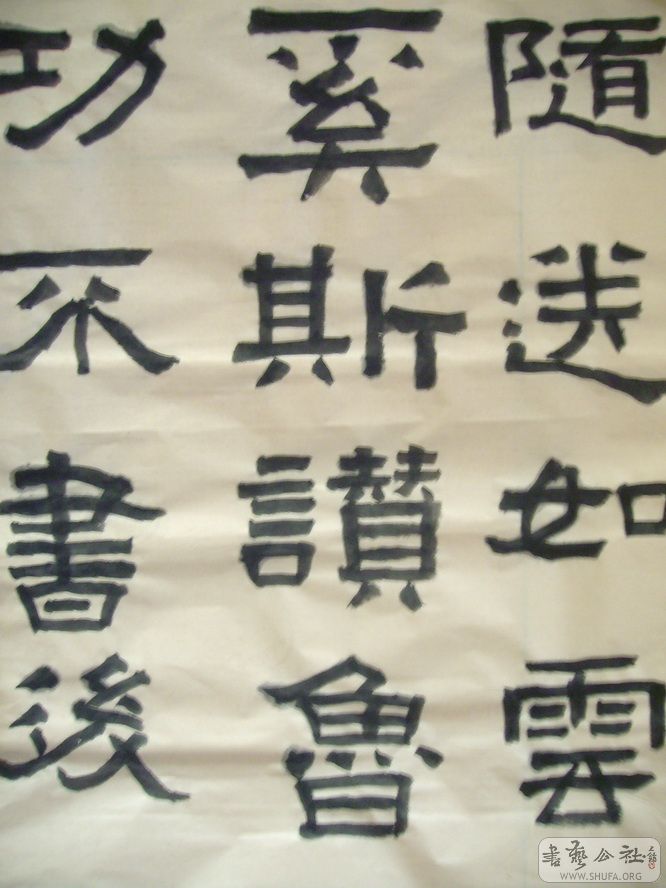 隨送如雲
奚斯讚魯
功不書後
書藝公社
WWW.SHUFA.ORG